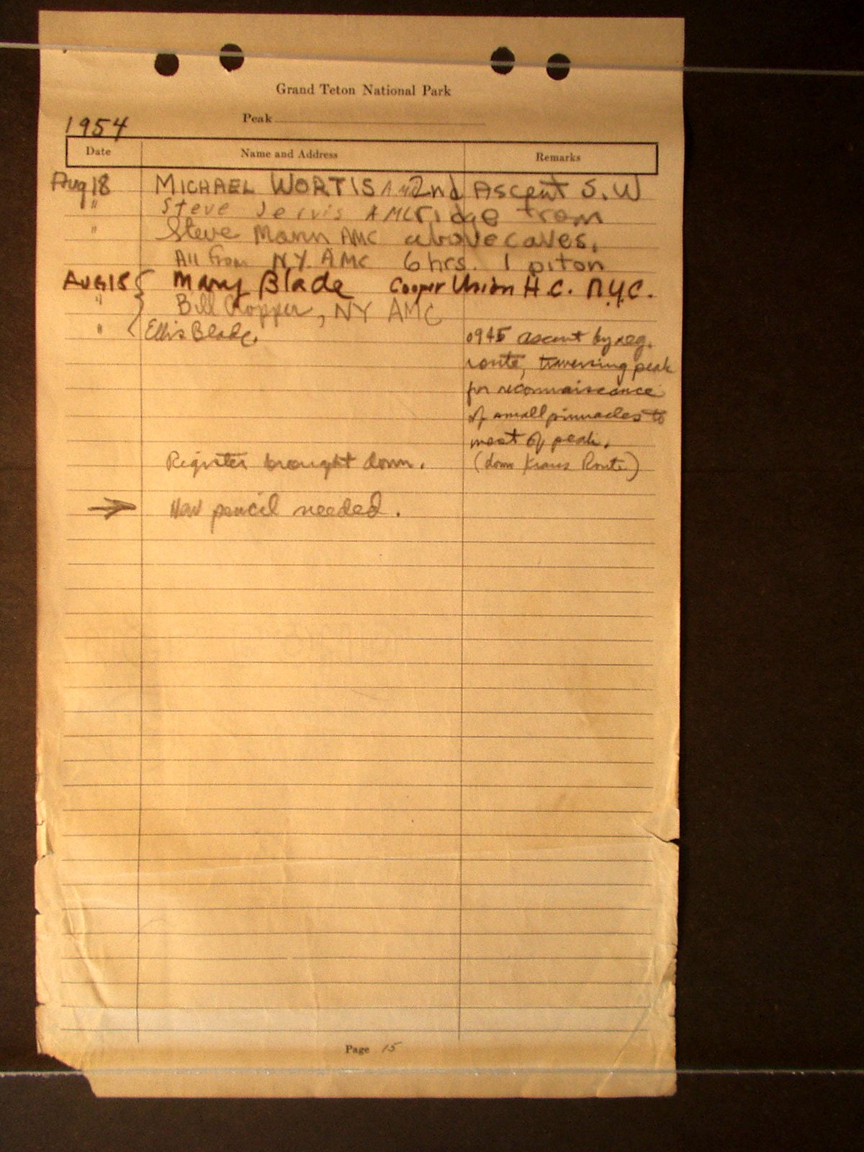 Grand Teton National Park
1954 Peak
Date Name and Address Remarks
Aug 18 MICHAEL WORTIS AMC 2nd Ascent S.W
" Steve Jervis AMC ridge from
" Steve Mann AMC above caves.
All from NY. AMC 6 hrs. 1 piton
AUG 18 Mary Blade Cooper Union H.C. N.Y.C.
" Bill Cropper, NY AMC
" Ellis Blade. 0945 ascent by reg.
route, traversing peak
for reconnaissance
of small pinnacles to
west of peak.
Register brought down. (down Kraus Route)
→ New pencil needed.
Page 15